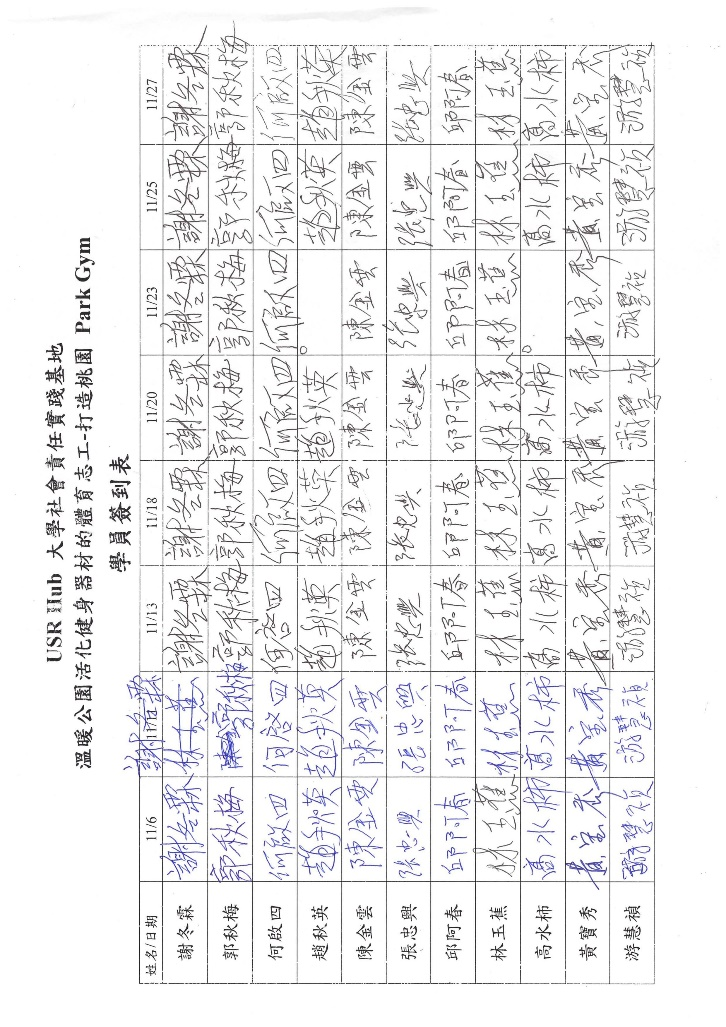 USR Hub 大學社會責任實踐基地
溫暖公園活化健身器材的體育志工-打造桃園 Park Gym
學員簽到表
姓名/日期 11/6 11/12 11/13 11/18 11/20 11/23 11/25 11/27
謝冬霖 謝冬霖 謝冬霖 林玉蕉 謝冬霖 謝冬霖 謝冬霖 謝冬霖 謝冬霖 謝冬霖
郭秋梅 郭秋梅 郭秋梅 郭秋梅 郭秋梅 郭秋梅 郭秋梅 郭秋梅 郭秋梅
何啟四 何啟四 何啓四 何啓四 何啟四 何啟四 何啟四 何啟四 何啟四
趙秋英 趙秋英 趙秋英 趙秋英 趙秋英 趙秋英 。 趙秋英 趙秋英
陳金雲 陳金雲 陳金雲 陳金雲 陳金雲 陳金雲 陳金雲 陳金雲 陳金雲
張忠興 張忠興 張忠興 張忠興 張忠興 張忠興 張忠興 張忠興 張忠興
邱阿春 邱阿春 邱阿春 邱阿春 邱阿春 邱阿春 邱阿春 邱阿春 邱阿春
林玉蕉 林玉蕉 林玉蕉 林玉蕉 林玉蕉 林玉蕉 林玉蕉 林玉蕉 林玉蕉
高水柿 高水柿 高水柿 高水柿 高水柿 高水柿 。 高水柿 高水柿
黃寶秀 黃宝秀 黃宝秀 黃宝秀 黃宝秀 黃宝秀 黃宝秀 黃宝秀 黃宝秀
游慧禎 游慧禎 游慧禎 游慧禎 游慧禎 游慧禎 游慧禎 游慧禎 游慧禎